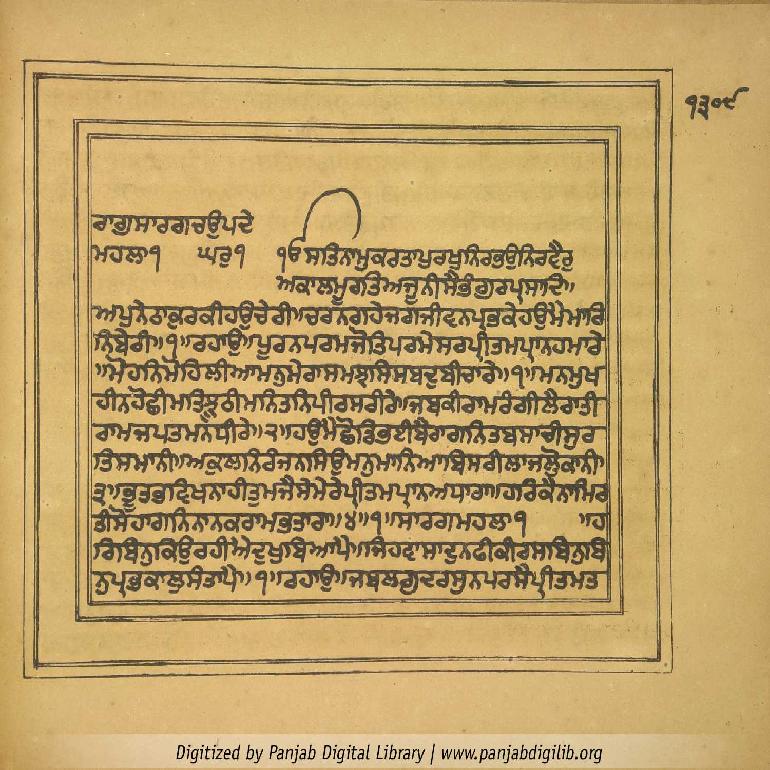 ੧੩੦੯
ਰਾਗੁਸਾਰਗਚਉਪਦੇ
ਮਹਲਾ੧ ਘਰੁ੧ ੴਸਤਿਨਾਮੁਕਰਤਾਪੁਰਖੁਨਿਰਭਉਨਿਰਵੈਰੁ
ਅਕਾਲਮੂਰਤਿਅਜੂਨੀਸੈਭੰਗੁਰਪ੍ਰਸਾਦਿ॥
ਅਪੁਨੇਠਾਕੁਰਕੀਹਉਚੇਰੀ॥ਚਰਨਗਹੇਜਗਜੀਵਨਪ੍ਰਭਕੇਹਉਮੈਮਾਰਿ
ਨਿਬੇਰੀ॥੧॥ਰਹਾਉ॥ਪੂਰਨਪਰਮਜੋਤਿਪਰਮੇਸਰਪ੍ਰੀਤਮਪ੍ਰਾਨਹਮਾਰੇ
॥ਮੋਹਨਿਮੋਹਿਲੀਆਮਨੁਮੇਰਾਸਮਝਸਿਸਬਦੁਬੀਚਾਰੇ॥੧॥ਮਨਮੁਖ
ਹੀਨਹੋਛੀਮਤਿਝੂਠੀਮਨਿਤਨਿਪੀਰਸਰੀਰੇ॥ਜਬਕੀਰਾਮਰੰਗੀਲੈਰਾਤੀ
ਰਾਮਜਪਤਮਨਧੀਰੇ॥੨॥ਹਉਮੈਛੋਡਿਭਈਬੈਰਾਗਨਿਤਬਸਾਚੀਸੁਰ
ਤਿਸਮਾਨੀ॥ਅਕੁਲਨਿਰੰਜਨਸਿਉਮਨੁਮਾਨਿਆਬਿਸਰੀਲਾਜਲੋੁਕਾਨੀ॥
੩॥ਭੂਤਭਵਿਖਨਾਹੀਤੁਮਜੈਸੇਮੇਰੇਪ੍ਰੀਤਮਪ੍ਰਾਨਅਧਾਰਾ॥ਹਰਿਕੈਨਾਮਿਰ
ਤੀਸੋਹਾਗਨਿਨਾਨਕਰਾਮਭਤਾਰਾ॥੪॥੧॥ਸਾਰਗਮਹਲਾ੧ ॥ਹ
ਰਿਬਿਨੁਕਿਉਰਹੀਐਦੁਖੁਬਿਆਪੈ॥ਜਿਹਵਾਸਾਦੁਨਫੀਕੀਰਸਬਿਨੁਬਿ
ਨੁਪ੍ਰਭਕਾਲੁਸੰਤਾਪੈ॥੧॥ਰਹਾਉ॥ਜਬਲਗੁਦਰਸੁਨਪਰਸੈਪ੍ਰੀਤਮਤ
Digitized by Panjab Digital Library | www.panjabdigilib.org